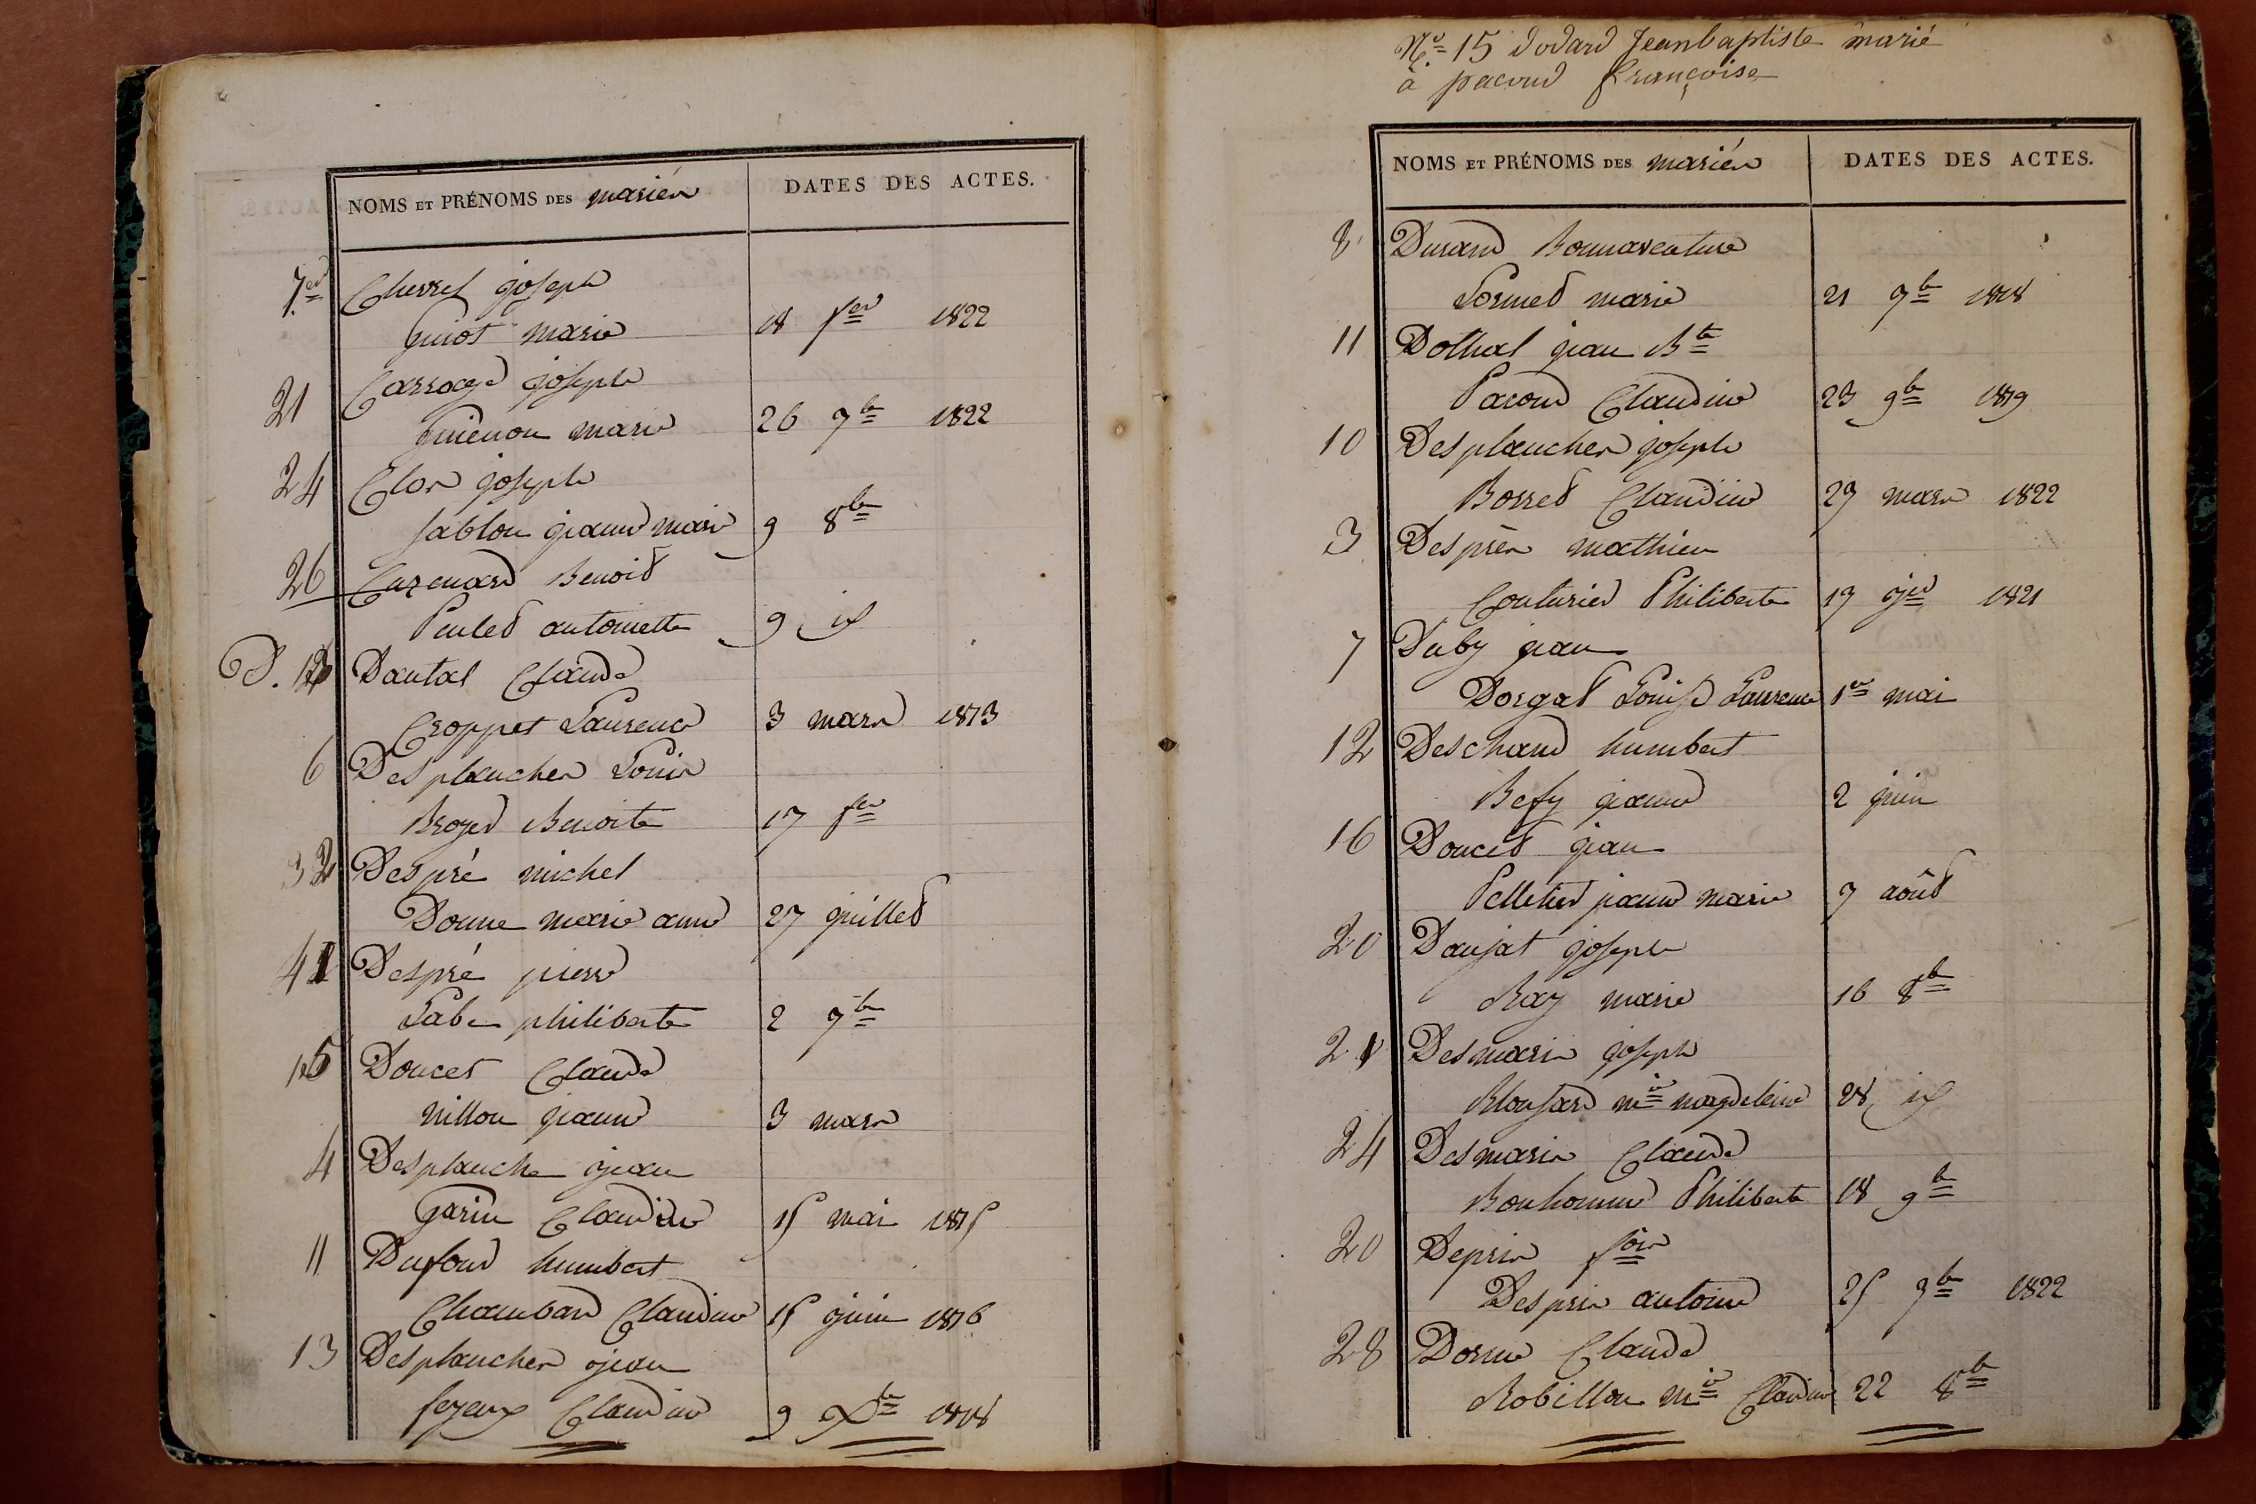 NOMS ET PRÉNOMS DES mariés DATES DES ACTES.
7 Chevrel joseph
Guiot marie 18 fer 1822
21 Carrage joseph
Guienon marie 26 7bre 1822
24 Clor joseph
Sablon jeanne marie 9 8bre
26 Benoid
Peuled antoinette 9 id
D. Dautal Claude
Croppet Laurence 3 mars 1813
6 Desplanches Louis
Broyer Benoite 17 fer
32 Despré michel
Donne marie anne 27 juilled
41 Despré pierre
Labe philiberte 2 7bre
15 Doucet Claude
nillon jeanne 3 mars
4 Desplanche jean
Garin Claudine 15 mai 1815
11 Dufour humbert
Chambard Claudine 15 juin 1816
13 Desplanches jean
Claudine 9 Xbre 1818
N° 15 dodard Jeanbaptiste marié
à pacoud françoise
NOMS ET PRÉNOMS DES mariés DATES DES ACTES.
8 Durand Bonnaventure
Lormed marie 21 7bre 1818
11 Dothal jean Bte
Pacoud Claudine 23 9bre 1819
10 Desplanches joseph
Borred Claudine 29 mars 1822
3 Després mathieu
Couturier Philiberte 1821
7 Duby jean
Dorgad Louise Laurence 1er mai
12 Deschand humbert
Befy jeanne 2 juin
16 Douced jean
Pelletier jeanne marie 7 aoûd
20 Daujat joseph
Ray marie 16 8bre
21 Desmaris joseph
Blonfard mie magdeleine 28 id
24 Desmaris Claude
Bonhomme Philiberte 18 9bre
20 Depris fois
Despris antoine 25 9bre 1822
28 Dorme Claude
Robillon mie Claudine 22 8bre